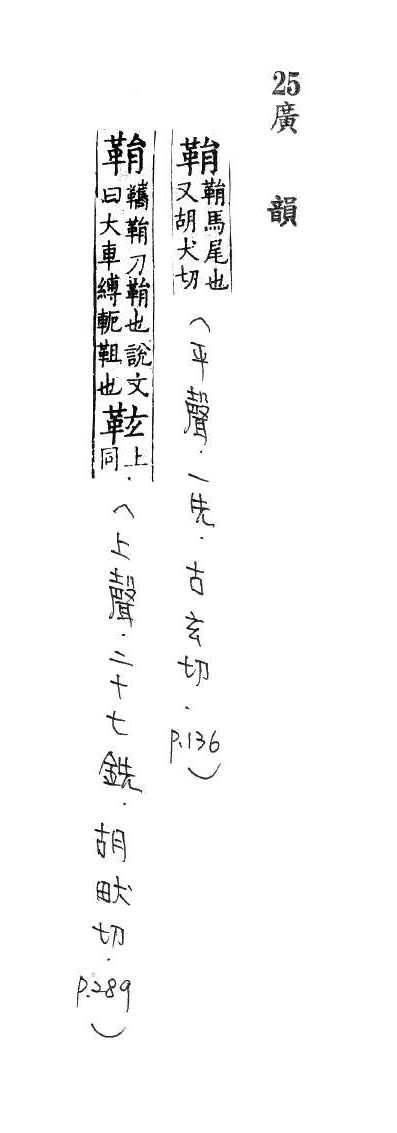 25廣韻
鞙鞙馬尾也又胡犬切(平聲.一先.古玄切.p.136)
鞙鞙刀鞙也說文曰大車縛軛靼也䩙上同.(上聲.二十七銑.胡畎切.p.289)